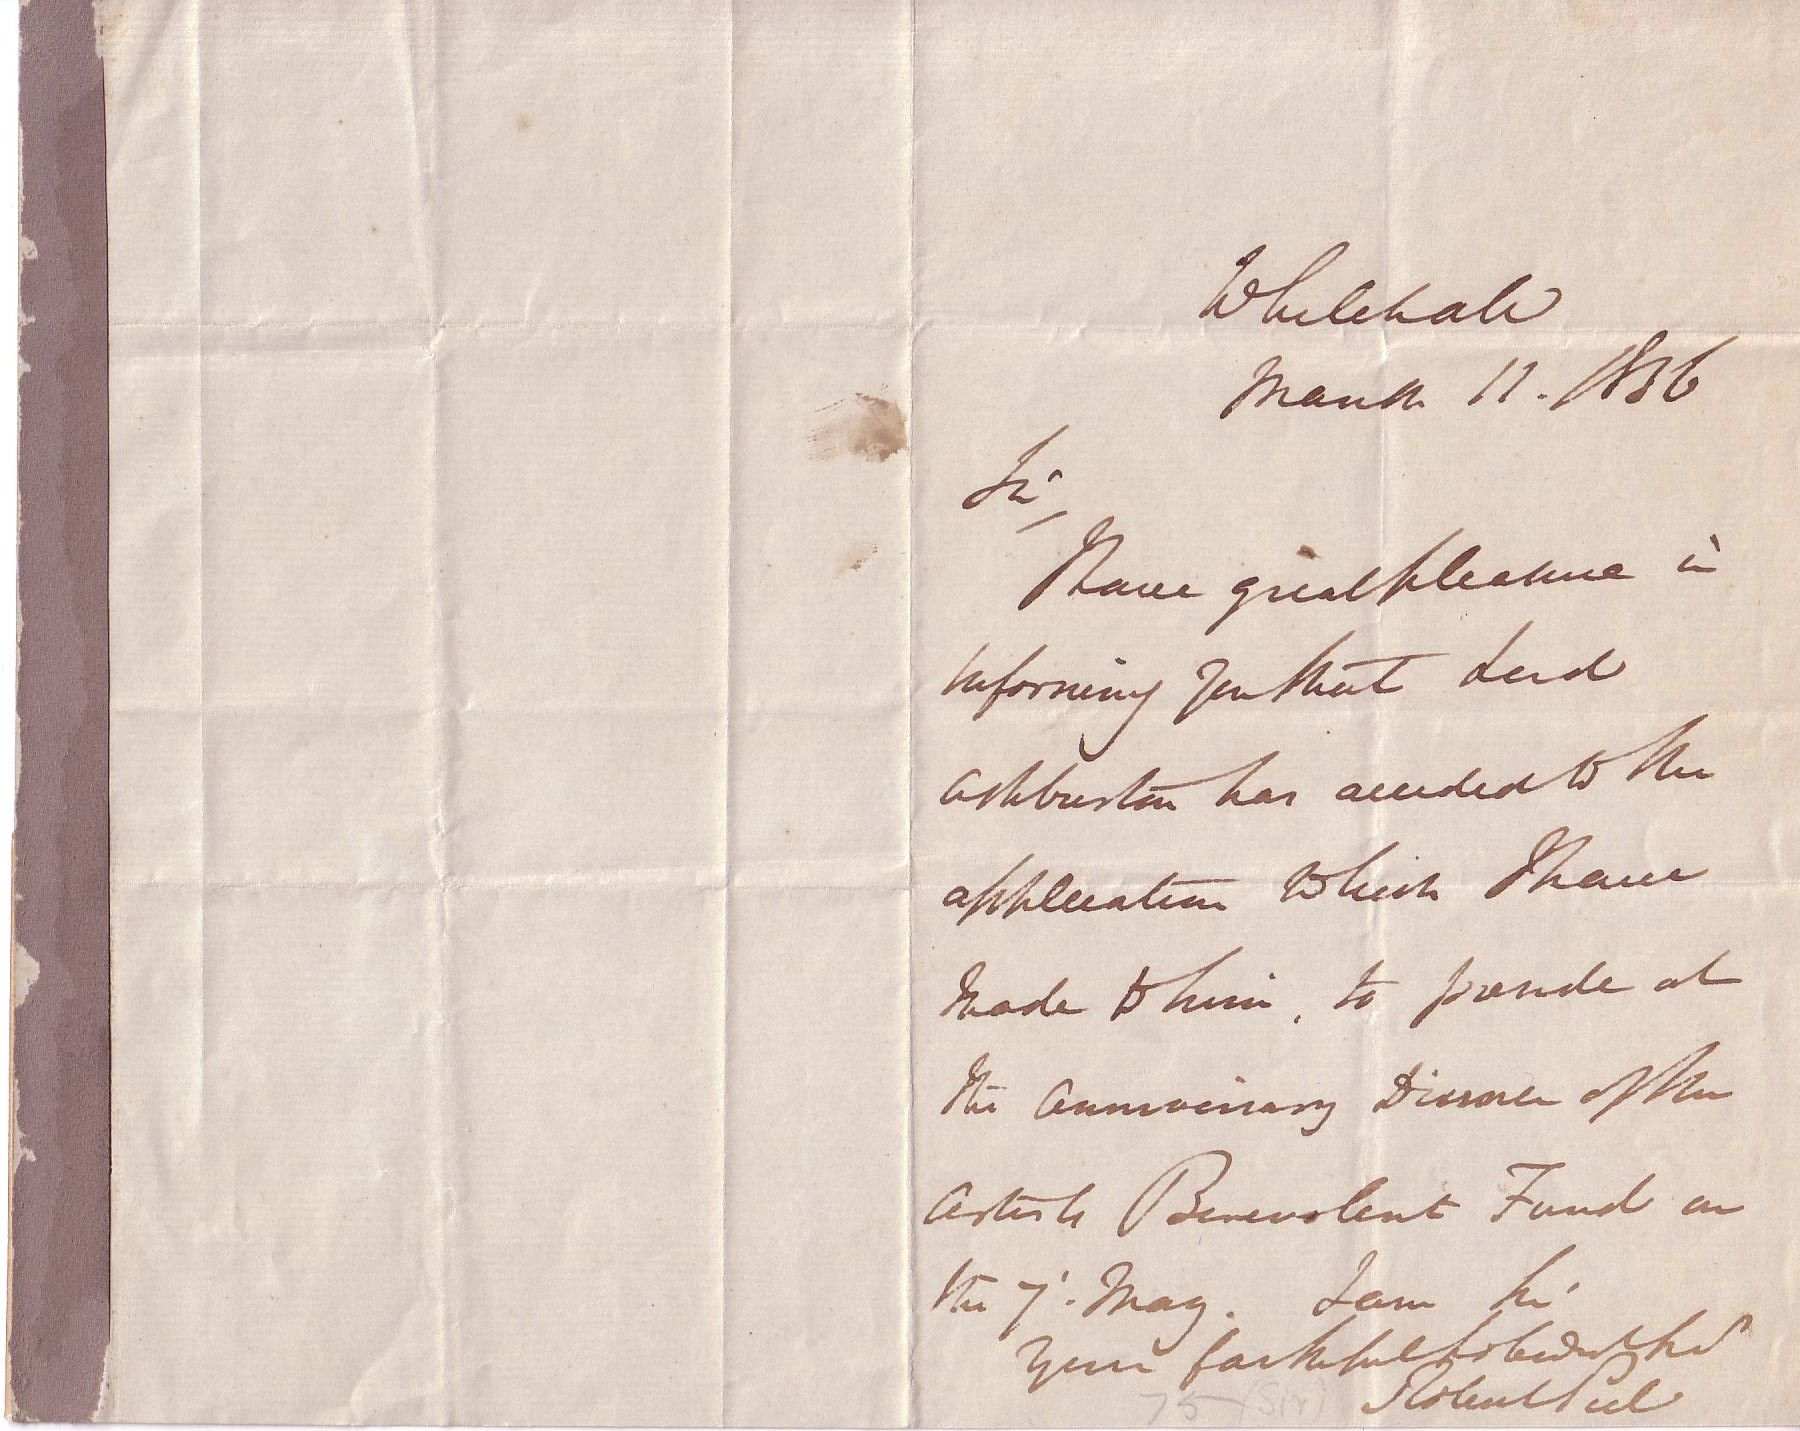 Whitehall
March 11. 1836
Sir,
I have great pleasure in
informing you that Lord
Ashburton has acceded to the
application which I have
made to him, to preside at
the Anniversary Dinner of the
Artists Benevolent Fund on
the 7. May. I am Sir
your faithful & obedt Sert
Robert Peel
75 (Sir)